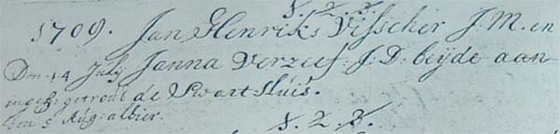 1. 2. 3.
1709. Jan Henriks Visscher J. M. en
Den 14 Julij Janna Verzeef: J: D: beijde aan
ingesch: getrout de Swart Sluis.
den 5 Aug: alhier.
1. 2. 3.